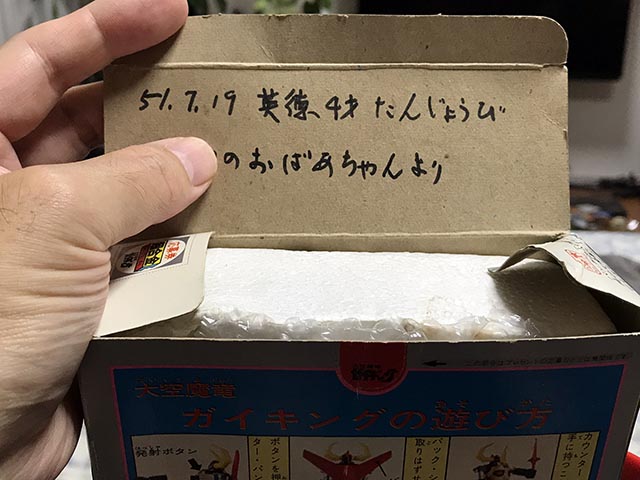 51.7.19 英徳、4才 たんじょうび
のおばあちゃんより
超合金
大空魔竜
ガイキングの遊び方
発射ボタン
ボタンを押
ター・パン
バック・シ
取りはずせ
カウンター
手に持つこ